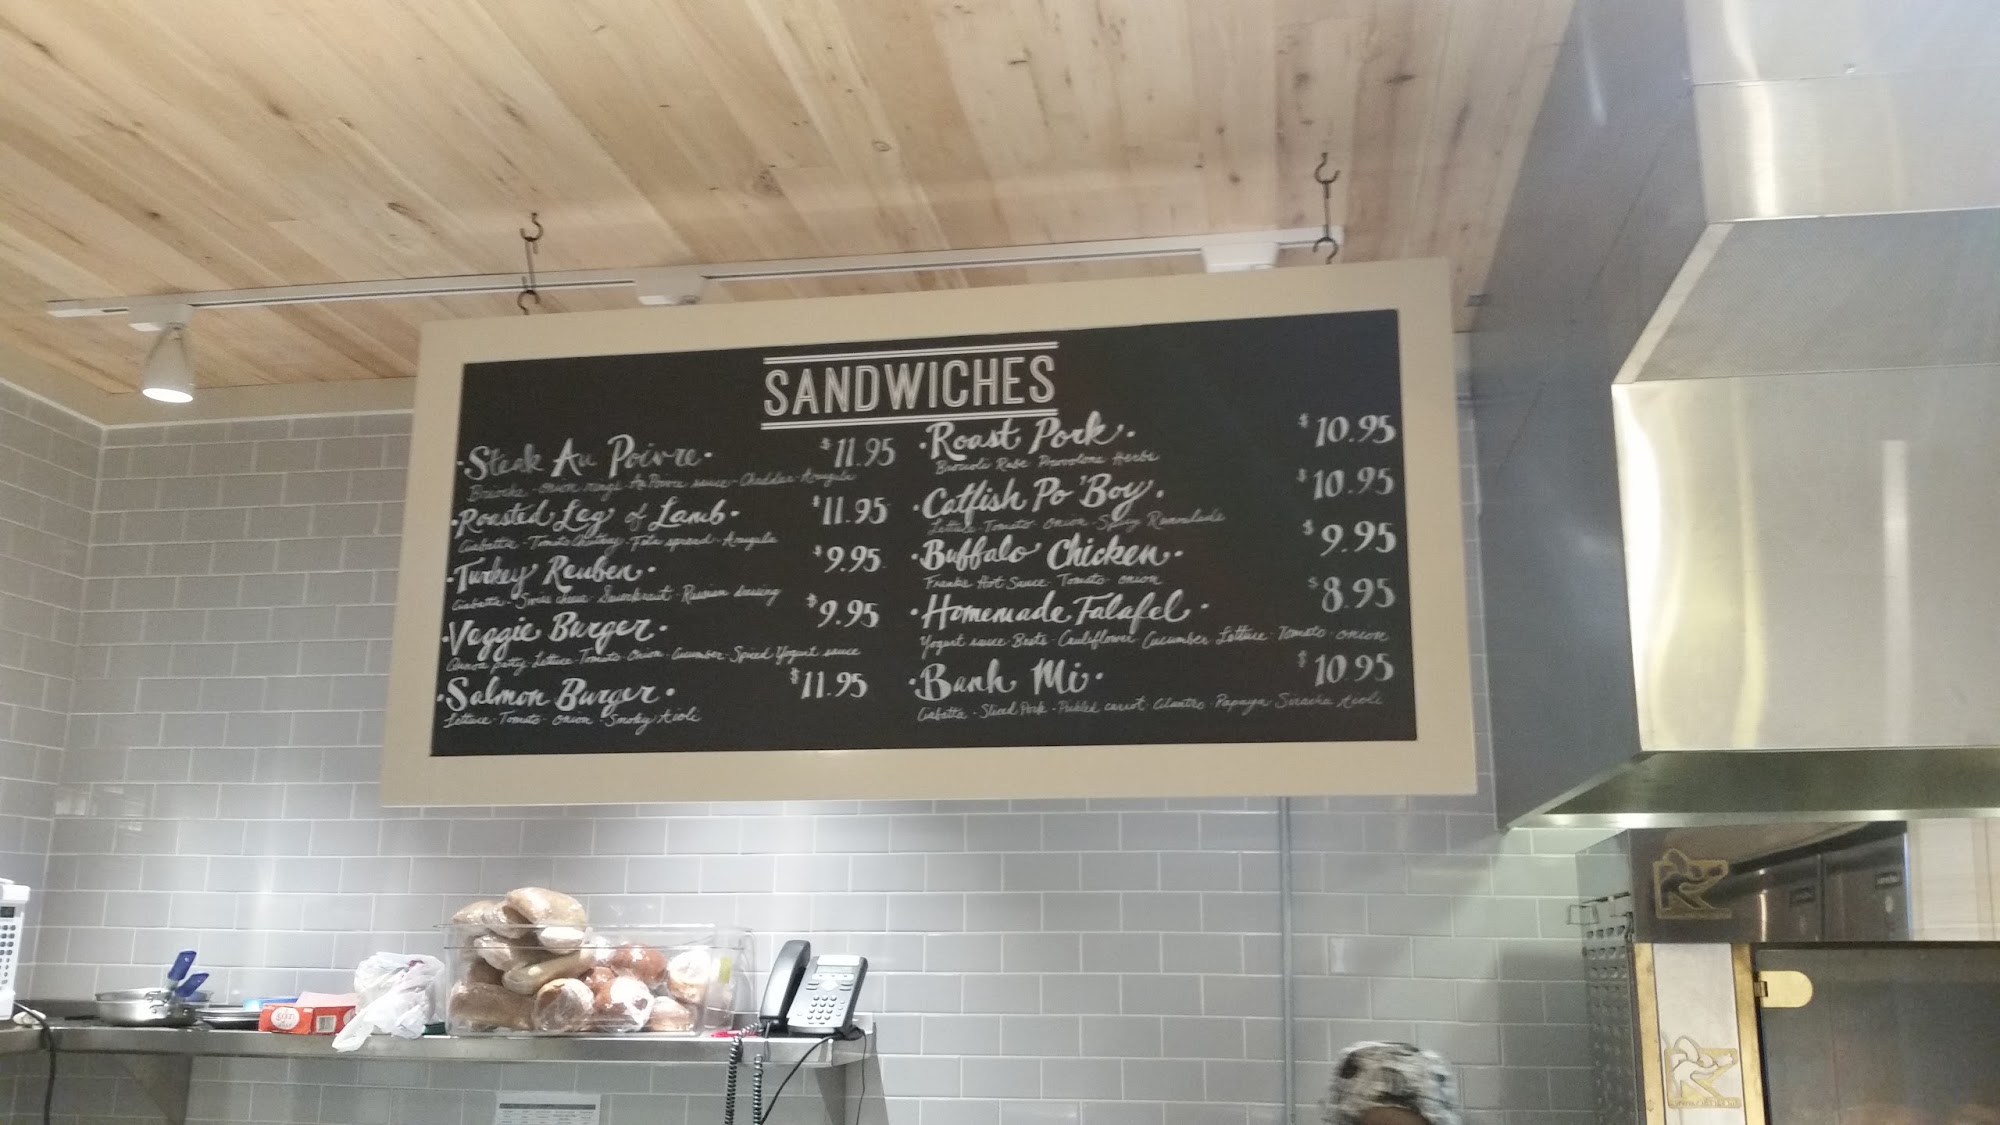 SANDWICHES
·Steak Au Poivre· $11.95
Brioche - onion rings - Au Poivre sauce - Cheddar - Arugula
·Roasted Leg of Lamb· $11.95
Ciabatta - Tomato Chutney - Feta spread - Arugula
·Turkey Reuben· $9.95
Ciabatta - Swiss cheese - Sauerkraut - Russian dressing
·Veggie Burger· $9.95
Quinoa patty - Lettuce - Tomato - Onion - Cucumber - Spiced Yogurt sauce
·Salmon Burger· $11.95
Lettuce - Tomato - onion - Smoky Aioli
·Roast Pork· $10.95
Broccoli Rabe Provolone Herbs
·Catfish Po'Boy· $10.95
Lettuce - Tomato - onion - Spicy Remoulade
·Buffalo Chicken· $9.95
Franks Hot Sauce - Tomato - onion
·Homemade Falafel· $8.95
Yogurt sauce - Beets - Cauliflower - Cucumber Lettuce - Tomato - onion
·Banh Mi· $10.95
Ciabatta - Sliced Pork - Pickled carrot - Cilantro - Papaya Siracha Aioli